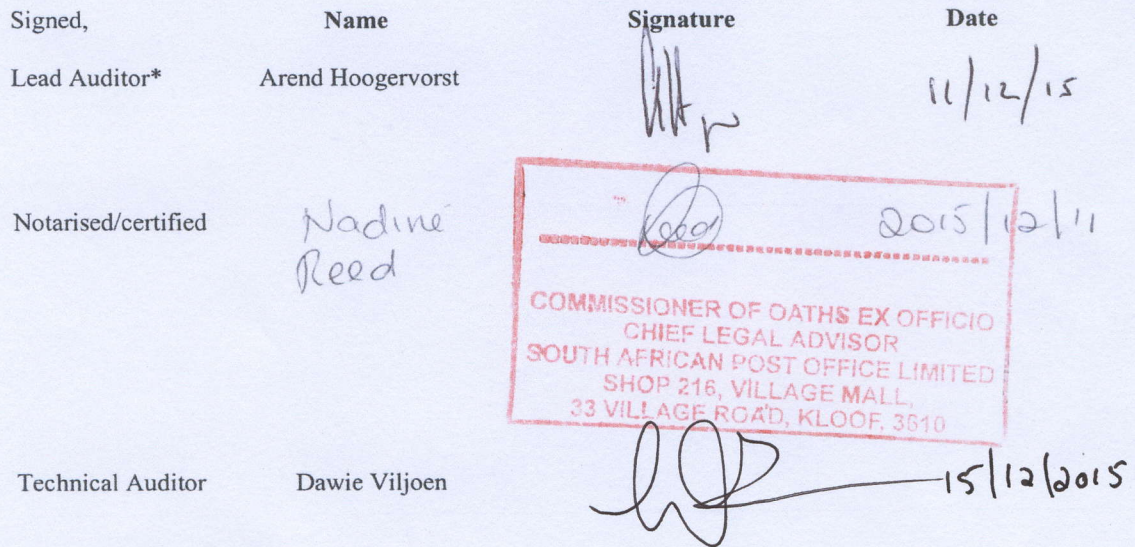 Signed, Name Signature Date
Lead Auditor* Arend Hoogervorst 11/12/15
Notarised/certified Nadine Reed 2015/12/11
Reed
COMMISSIONER OF OATHS EX OFFICIO
CHIEF LEGAL ADVISOR
SOUTH AFRICAN POST OFFICE LIMITED
SHOP 216, VILLAGE MALL,
33 VILLAGE ROAD, KLOOF, 3610
Technical Auditor Dawie Viljoen 15/12/2015